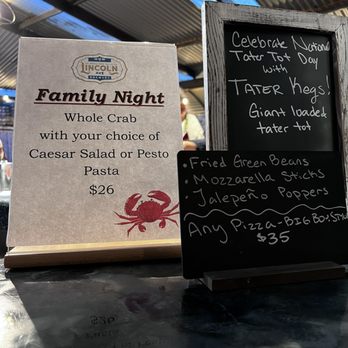 LINCOLN
Family Night
Whole Crab
with your choice of
Caesar Salad or Pesto
Pasta
$26
Celebrate National
Tater Tot Day
with
TATER KEGS!
Giant loaded
tater tot
• Fried Green Beans
• Mozzarella Sticks
• Jalepeño Poppers
Any Pizza - BIG BOY STYLE
$35